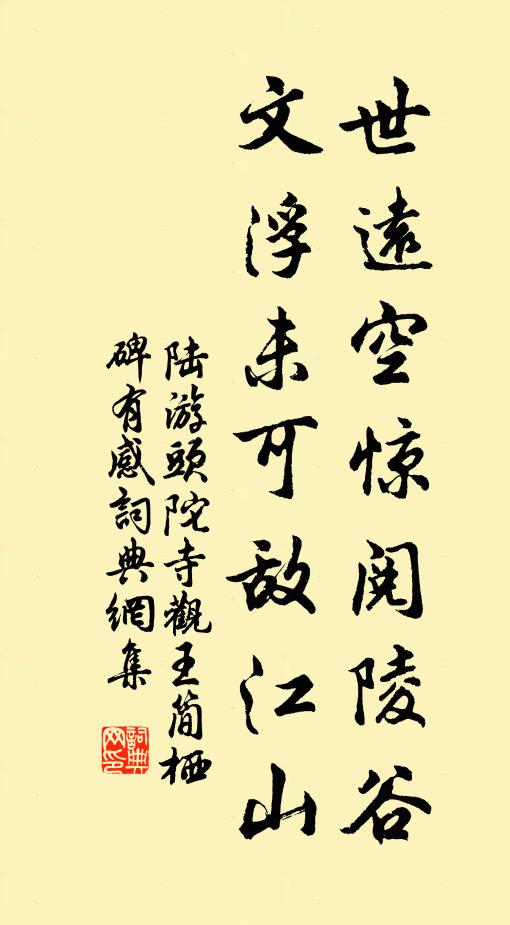 世遠空惊閱陵谷
文浮未可敌江山
陆游頭陀寺觀王简栖
碑有感詞典網集
詞典
网印